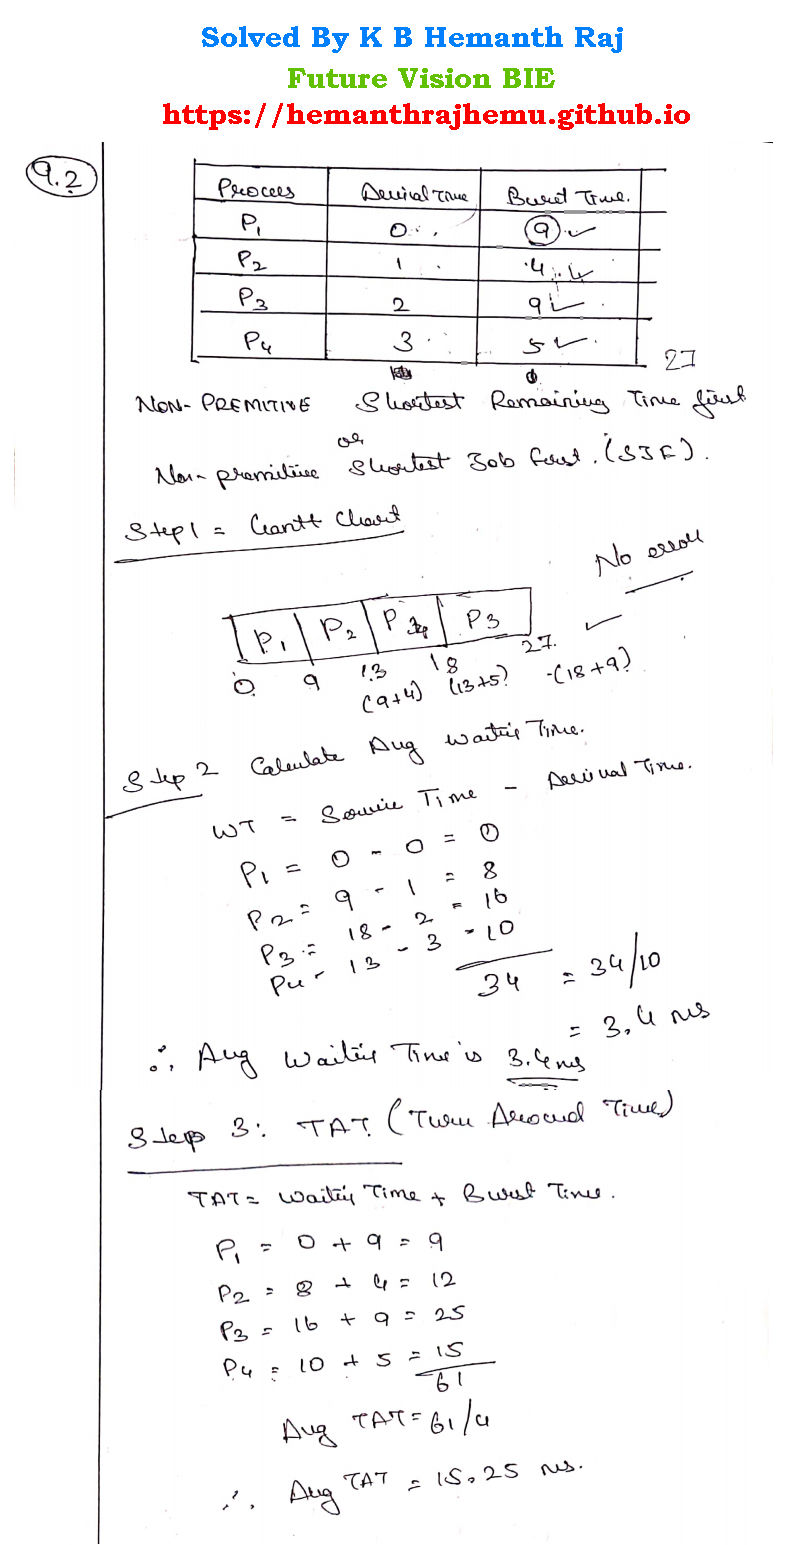 Solved By K B Hemanth Raj
Future Vision BIE
https://hemanthrajhemu.github.io
9.2
Process Arrival Time Burst Time.
P1 0 9
P2 1 4
P3 2 9
P4 3 5
27
NON-PREMITIVE Shortest Remaining Time first
or
Non-premitive Shortest Job first. (SJF).
Step1 = Gantt Chart
No error
P1 P2 P4 P3
0 9 13 18 27.
(9+4) (13+5) (18+9)
Step 2 Calculate Avg Waiting Time.
WT = Service Time - Arrival Time.
P1 = 0 - 0 = 0
P2 = 9 - 1 = 8
P3 = 18 - 2 = 16
P4 - 13 - 3 - 10
34 = 34/10
= 3.4 ms
∴ Avg Waiting Time is 3.4ms
Step 3: TAT (Turn Around Time)
TAT = Waiting Time + Burst Time.
P1 = 0 + 9 = 9
P2 = 8 + 4 = 12
P3 = 16 + 9 = 25
P4 = 10 + 5 = 15
61
Avg TAT = 61/4
∴ Avg TAT = 15.25 ms.